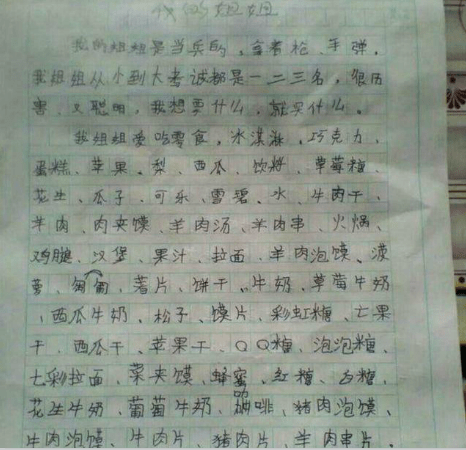 我的姐姐
我的姐姐是当兵的，拿着枪、手弹，
我姐姐从小到大考试都是一二三名，很厉
害，又聪明，我想要什么，就买什么。
我姐姐爱吃零食，冰淇淋、巧克力、
蛋糕、苹果、梨、西瓜、饮料、草莓糖、
花生、瓜子、可乐、雪碧、水、牛肉干、
羊肉、肉夹馍、羊肉汤、羊肉串、火锅、
鸡腿、汉堡、果汁、拉面、羊肉泡馍、菠
萝、葡萄、薯片、饼干、牛奶、草莓牛奶
、西瓜牛奶、松子、馍片、彩虹糖、芒果
干、西瓜干、苹果干、QQ糖、泡泡糖、
七彩拉面、菜夹馍、蜂蜜、红糖、白糖、
花生牛奶、葡萄牛奶、咖啡、猪肉泡馍、
牛肉泡馍、牛肉片、猪肉片、羊肉串片、